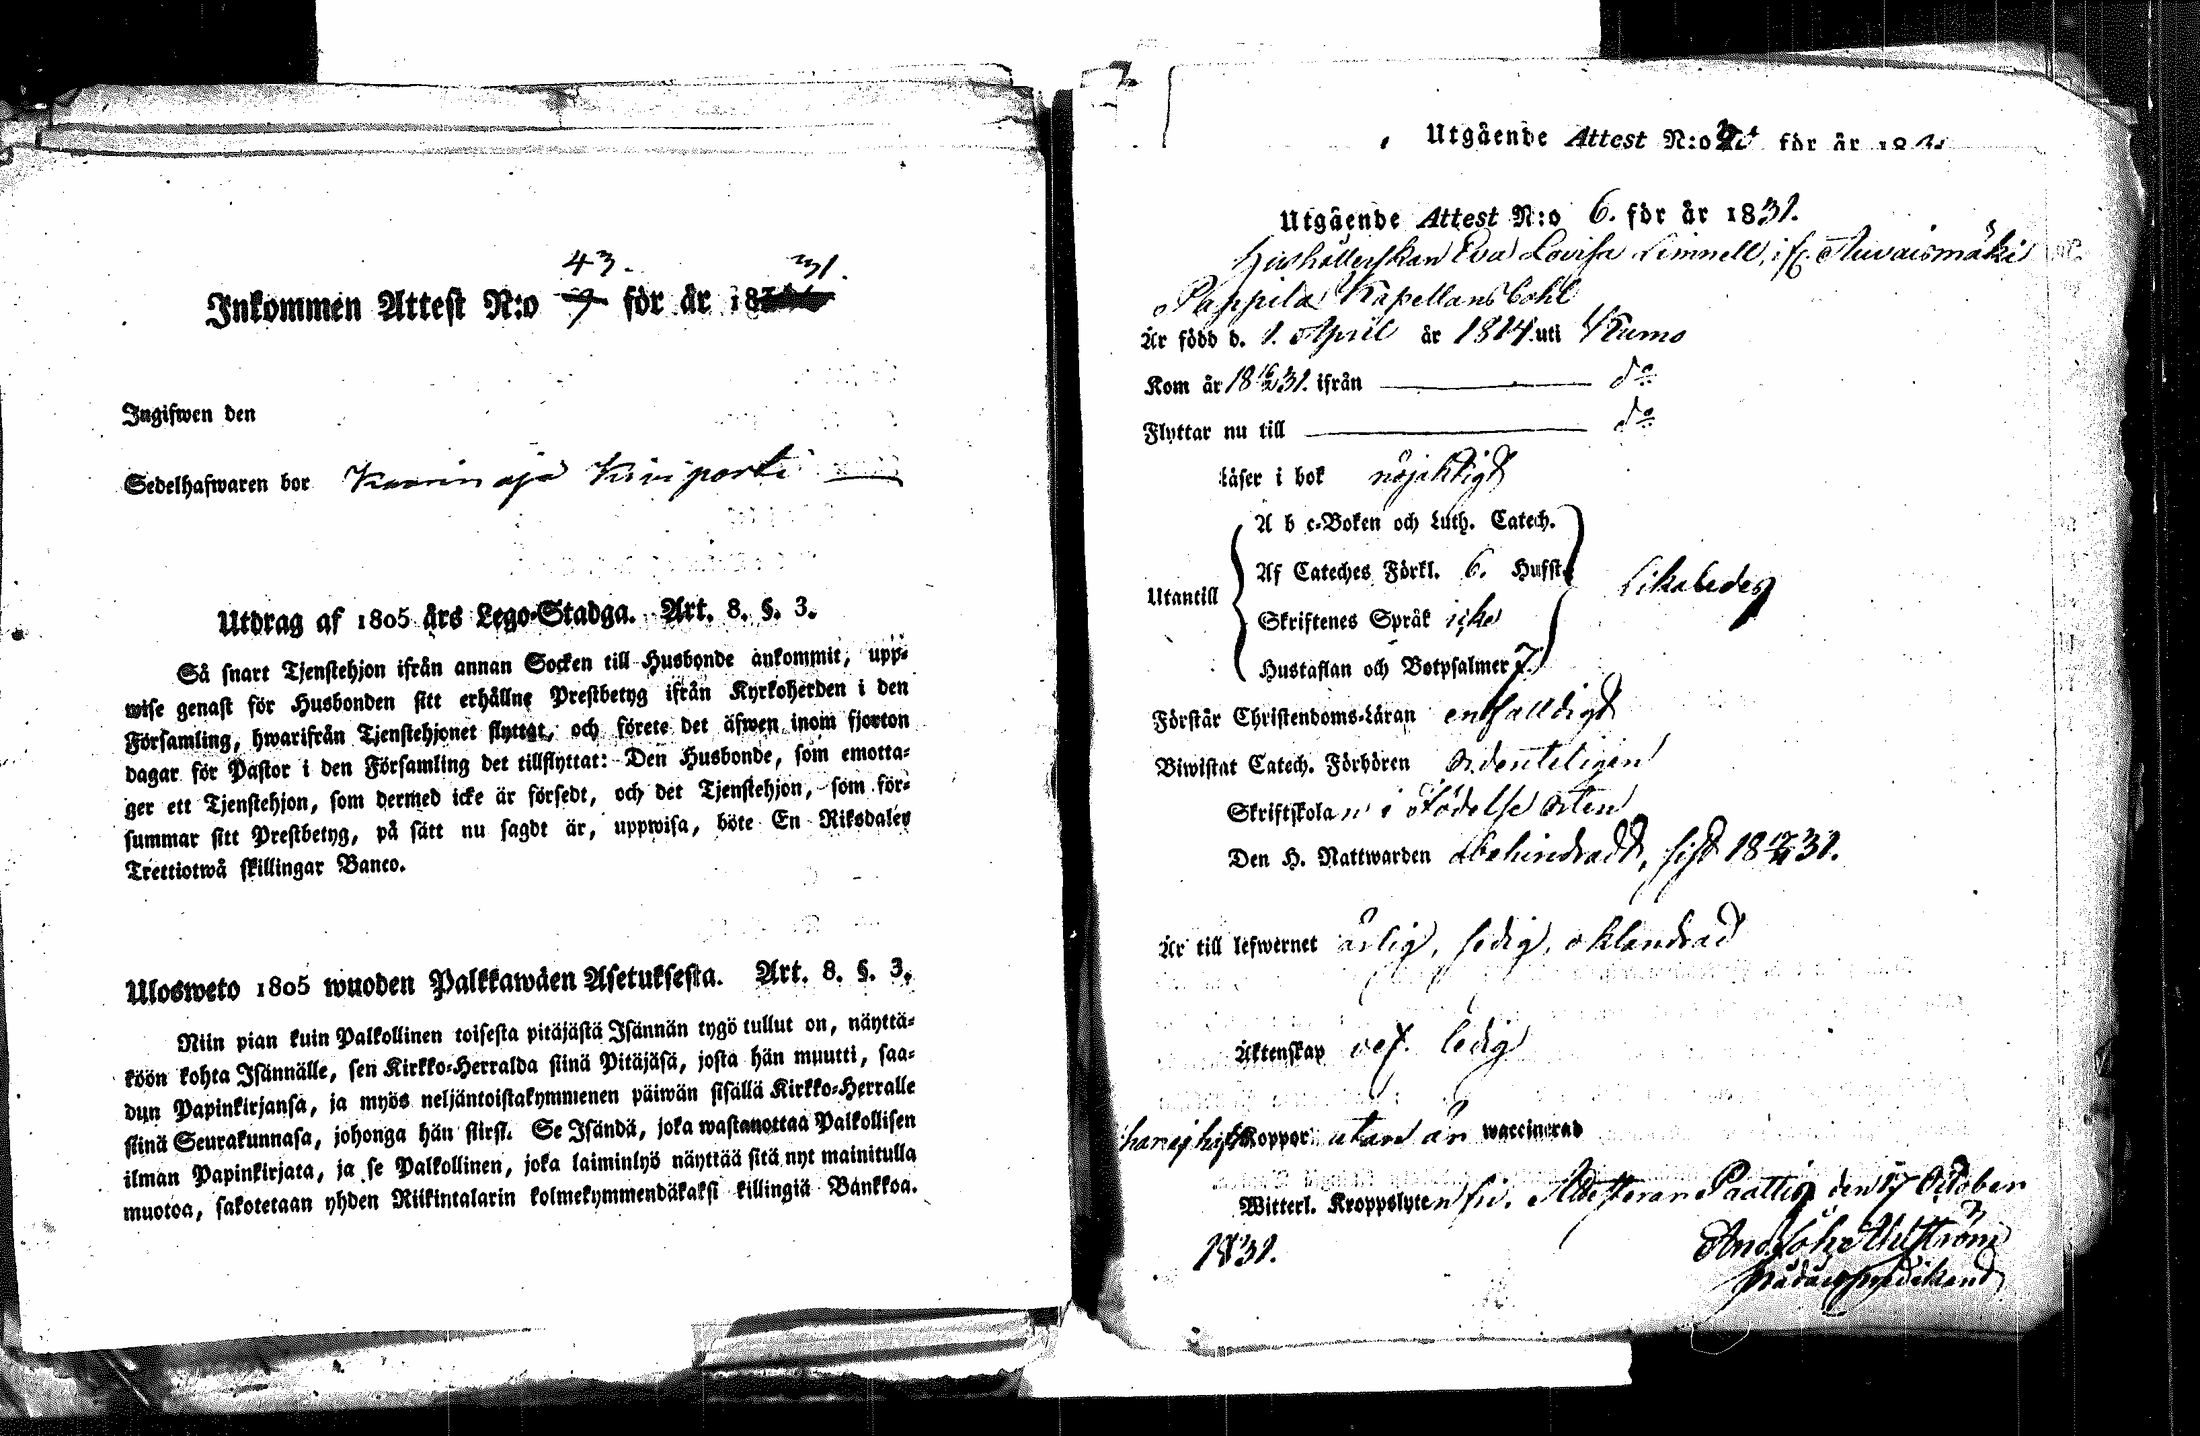 43. 31.
Inkommen Attest N:o 7 för år 18
Ingifwen den
Sedelhafwaren bor Kaarinoja Kiviporti
Utdrag af 1805 års Lego-Stadga. Art. 8. §. 3.
Så snart Tjenstehjon ifrån annan Socken till Husbonde ankommit, upp-
wise genast för Husbonden sitt erhållne Prestbetyg ifrån Kyrkoherden i den
Församling, hwarifrån Tjenstehjonet flyttat, och förete det äfwen inom fjorton
dagar för Pastor i den Församling det tillflyttat: Den Husbonde, som emotta-
ger ett Tjenstehjon, som dermed icke är försedt, och det Tjenstehjon, som för-
summar sitt Prestbetyg, på sätt nu sagdt är, uppwisa, böte En Riksdaler
Trettiotwå skillingar Banco.
Ulosweto 1805 wuoden Palkkawäen Asetuksesta. Art. 8. §. 3.
Niin pian kuin Palkollinen toisesta pitäjästä Isännän tygö tullut on, näyttä-
köön kohta Isännälle, sen Kirkko-Herralda siinä Pitäjäsä, josta hän muutti, saa-
dun Papinkirjansa, ja myös neljäntoistakymmenen päiwän sisällä Kirkko-Herralle
siinä Seurakunnasa, johonga hän siirsi. Se Isändä, joka wastanottaa Palkollisen
ilman Papinkirjata, ja se Palkollinen, joka laiminlyö näyttää sitä nyt mainitulla
muotoa, sakotetaan yhden Riikintalarin kolmekymmendäkaksi killingiä Bankkoa.
Utgående Attest N:o för år 18
Utgående Attest N:o 6. för år 1831.
Hushållerskan Eva Lovisa Limnell, ifr. Auvaismäki
Pappila Kapellansbohl
Är född d. 1. April år 1814. uti Kumo
Kom år 18 31. ifrån do
Flyttar nu till do
Läser i bok nöjaktigt
A b c-Boken och Luth. Catech.
Af Cateches Förkl. 6. Hufst.
Utantill Likaledes
Skriftenes Språk icke
Hustaflan och Botpsalmer 7.
Förstår Christendoms-Läran enfalldigt
Biwistat Catech. Förhören Ordenteligen
Skriftskolan i Födelse Orten
Den H. Nattwarden obehindradt, sist 18 31.
Är till lefwernet ärlig, sedig, oklandrad
Äktenskap vet. ledig
har ej haft Koppor utan är waccinerad
Witterl. Kroppslyten fri. Paattis den 17 October
1831.
And. Joh. Ahlström
predikant